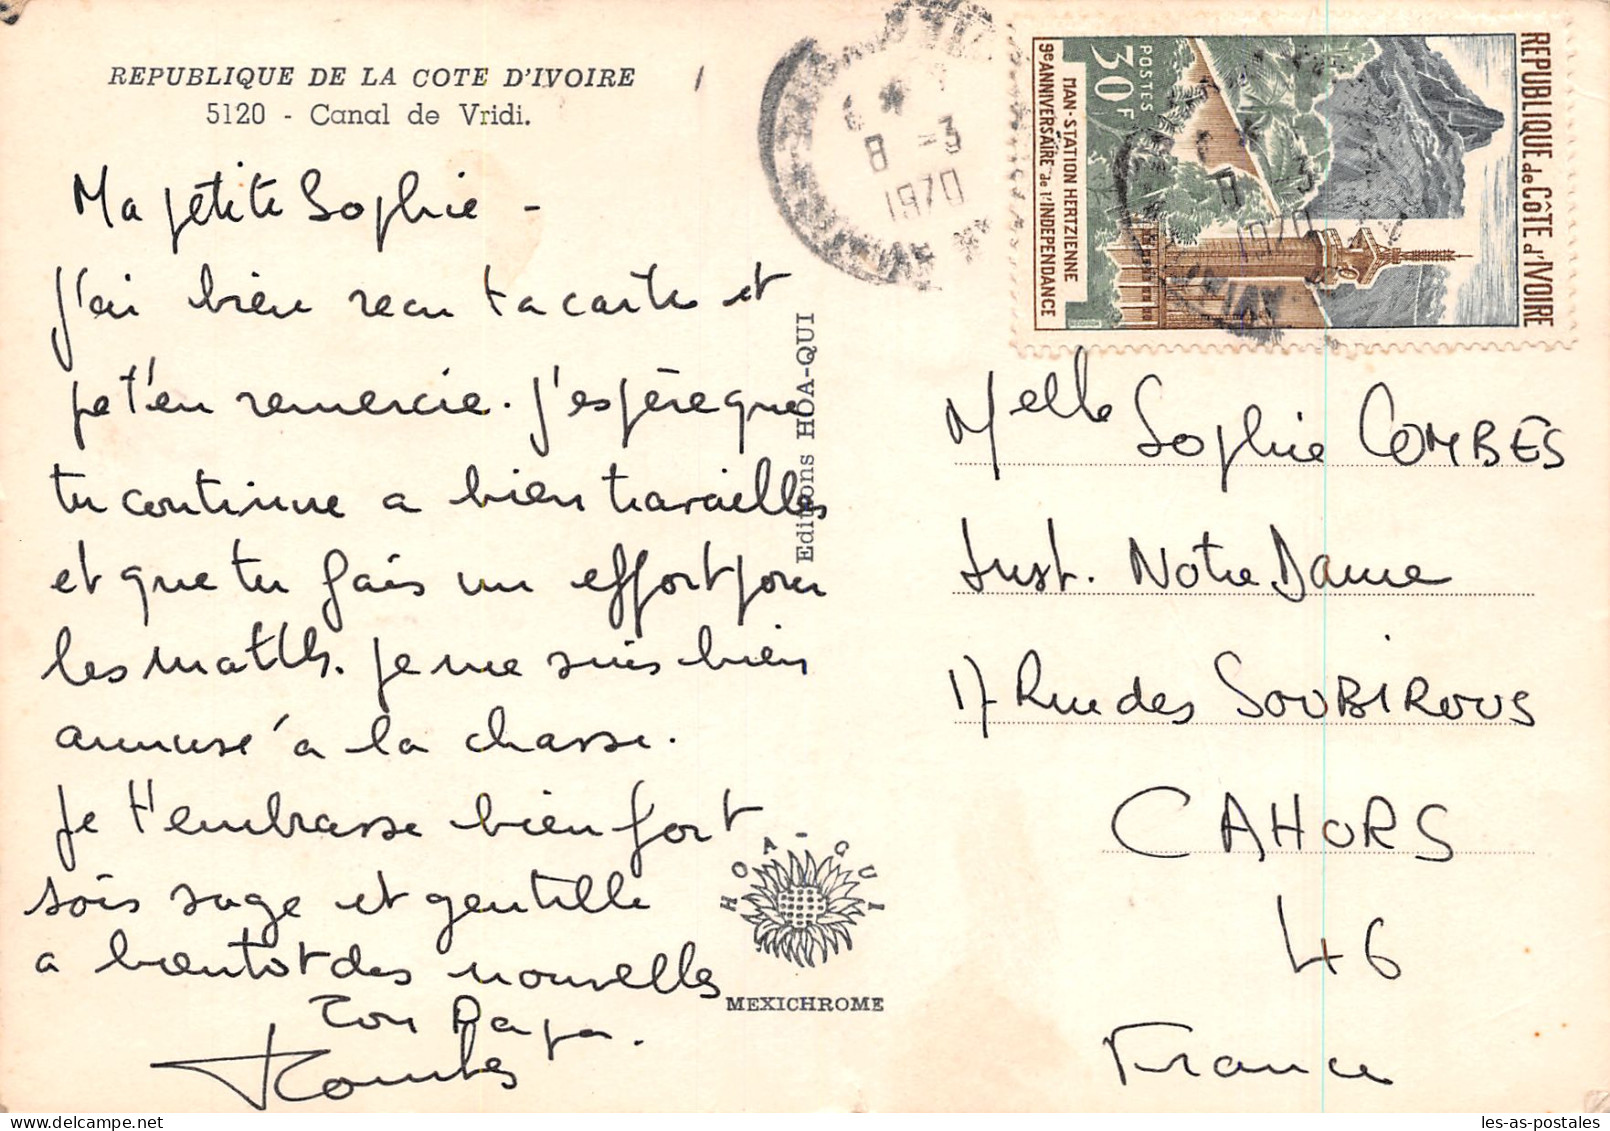 REPUBLIQUE DE LA COTE D'IVOIRE
5120 - Canal de Vridi.
Ma petite Sophie -
J'ai bien recu ta carte et
je t'en remercie. J'espère que
tu continue a bien travailler
et que tu fais un effort pour
les maths. Je me suis bien
amusé à la chasse.
Je t'embrasse bien fort
sois sage et gentille
a bientot des nouvelles
Ton Papa.
Combes
Editions HOA-QUI
HOA-QUI
MEXICHROME
8 -3
1970
REPUBLIQUE de CÔTE d'IVOIRE
POSTES
30F
MAN-STATION HERTZIENNE
9e ANNIVERSAIRE de l'INDEPENDANCE
Melle Sophie COMBES
Inst. Notre Dame
17 Rue des SOUBIROUS
CAHORS
46
France
les-as-postales